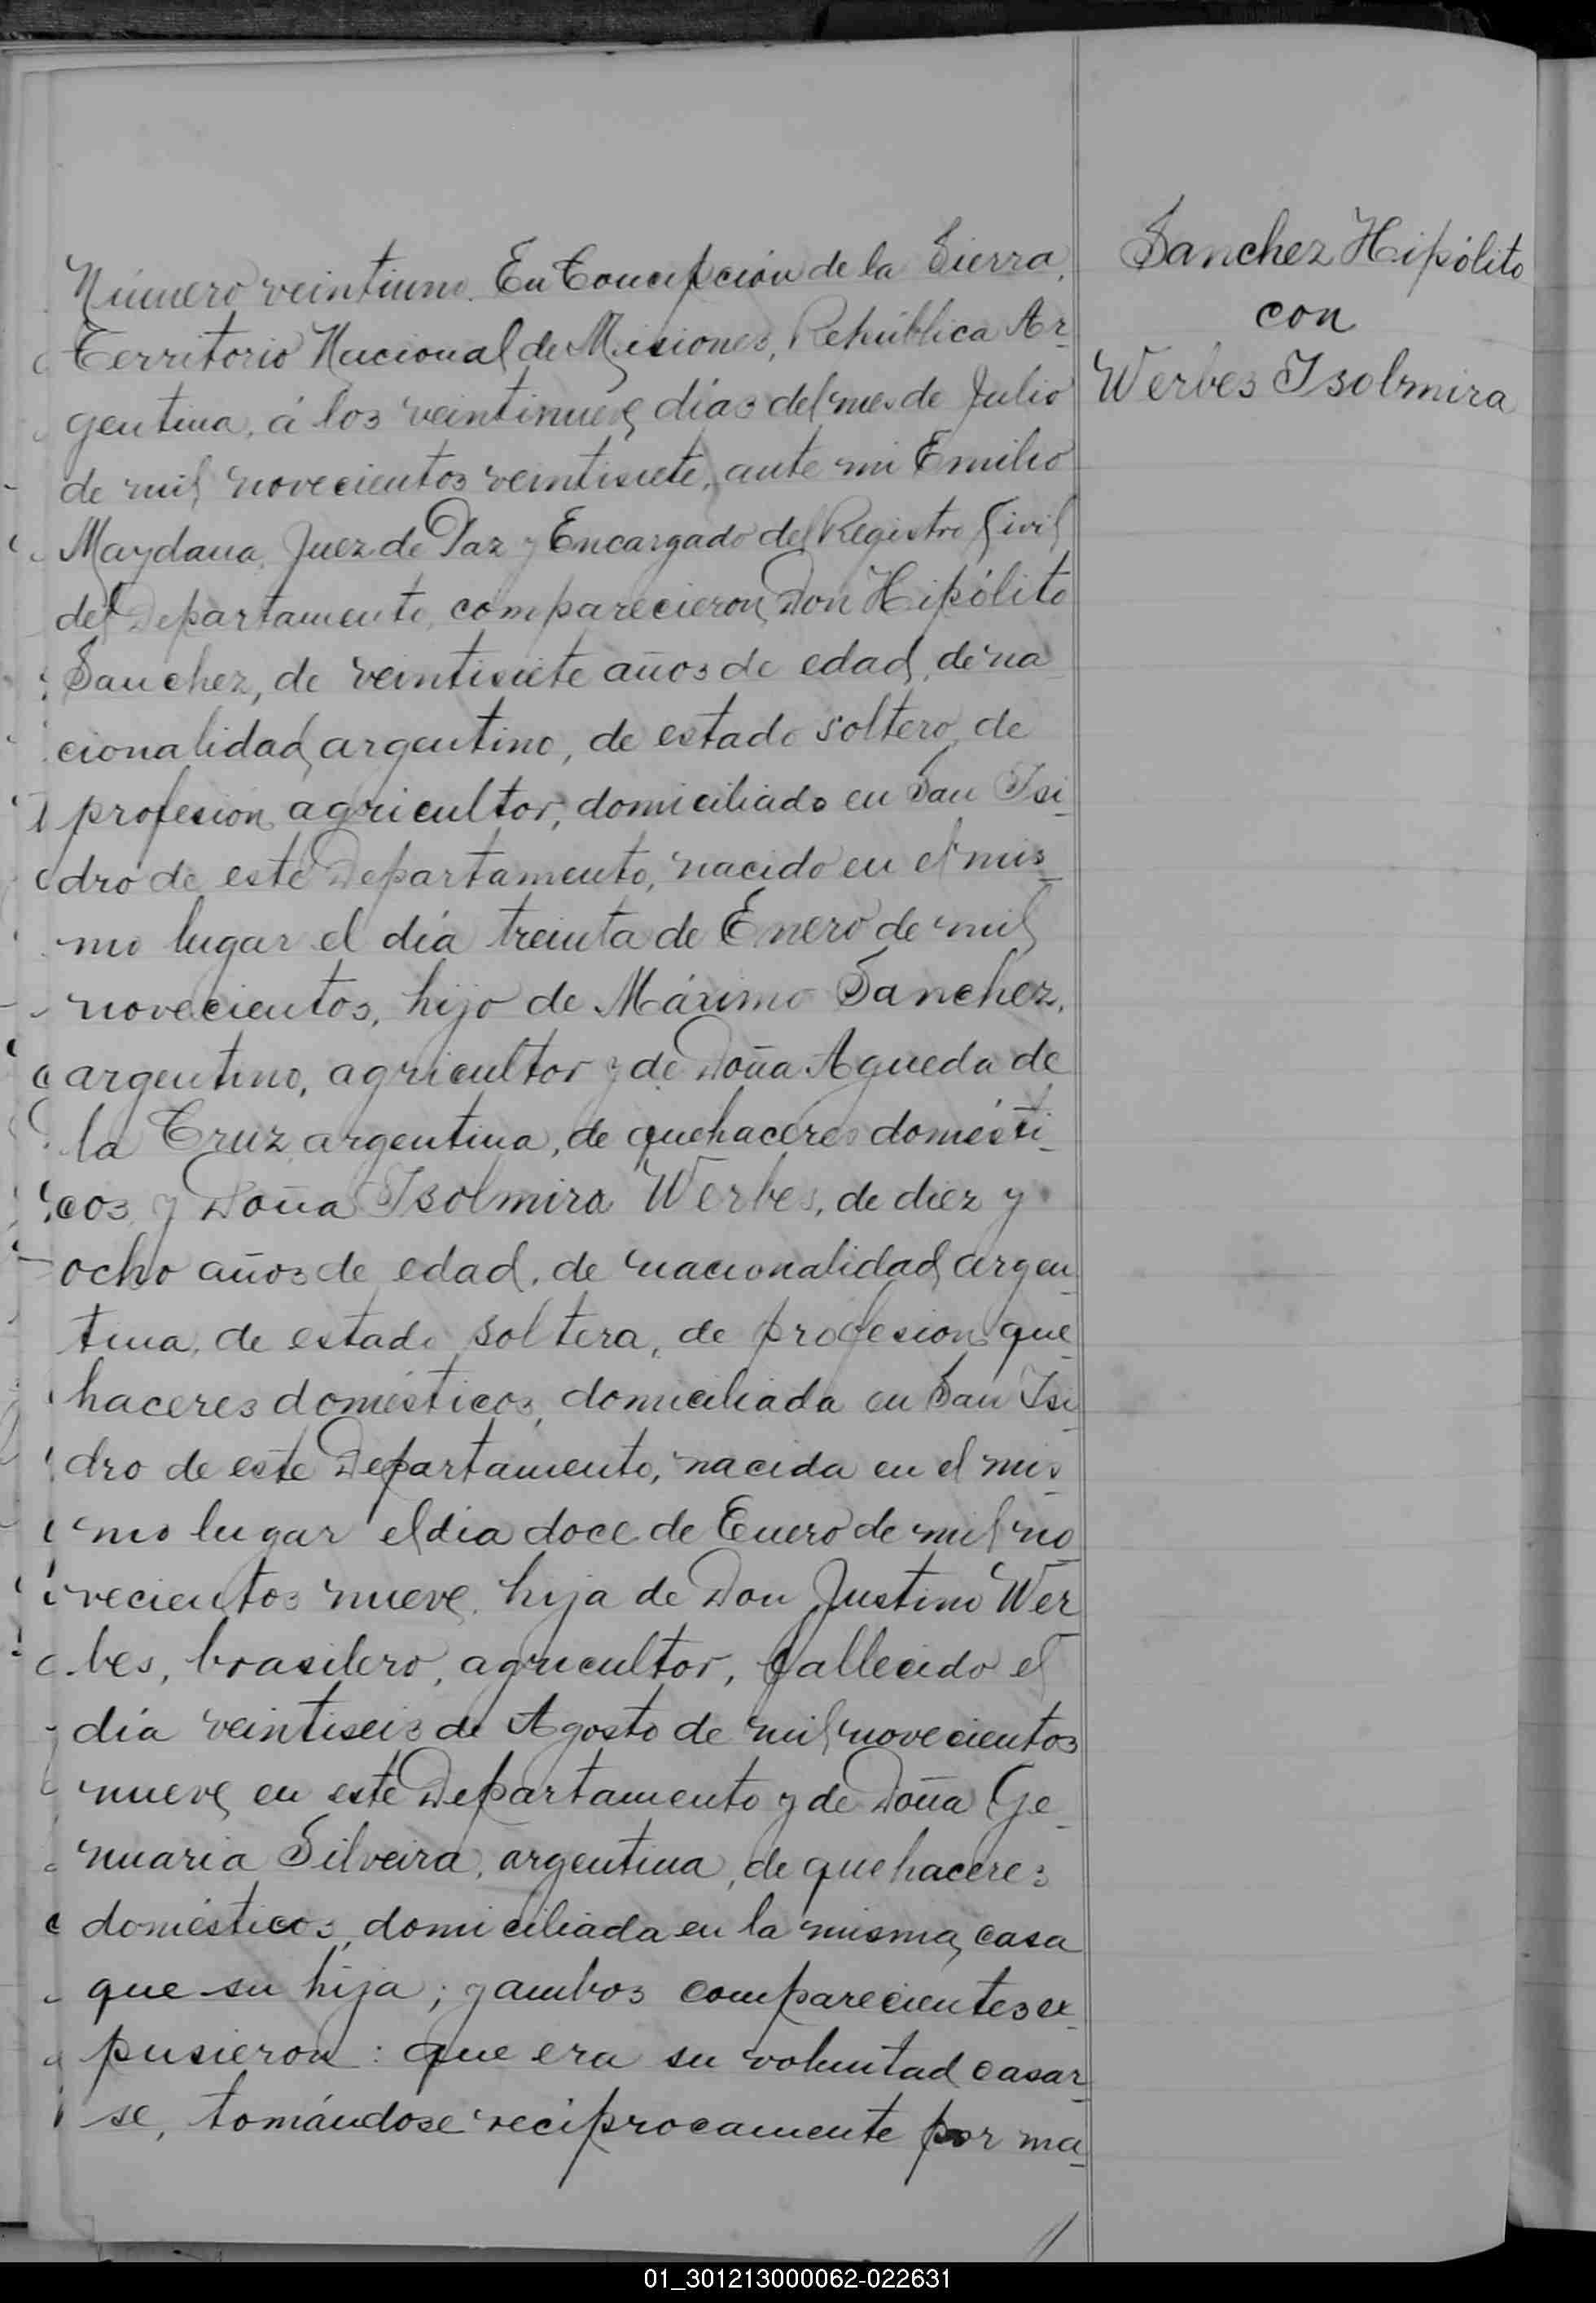 Sanchez Hipólito
con
Werbes Isolmira
Número veintiuno. En Concepción de la Sierra,
Territorio Nacional de Misiones, República Ar-
gentina, á los veintinueve días del mes de Julio
de mil novecientos veintisiete, ante mi Emilio
Maydana, Juez de Paz y Encargado del Registro Civil
del Departamento, comparecieron Don Hipólito
Sanchez, de veintisiete años de edad, de na
cionalidad argentino, de estado soltero, de
profesion agricultor, domiciliado en San Isi-
dro de este Departamento, nacido en el mis-
mo lugar el día treinta de Enero de mil
novecientos, hijo de Máximo Sanchez,
argentino, agricultor y de Doña Agueda de
la Cruz, argentina, de quehaceres domésti-
cos, y Doña Isolmira Werbes, de diez y
ocho años de edad, de nacionalidad argen-
tina, de estado soltera, de profesion que-
haceres domésticos, domiciliada en San Isi-
dro de este Departamento, nacida en el mis-
mo lugar el día doce de Enero de mil no-
vecientos nueve, hija de Don Justino Wer-
bes, brasilero, agricultor, fallecido el
día veintiseis de Agosto de mil novecientos
nueve en este Departamento y de Doña Ge-
nuaria Silveira, argentina, de quehaceres
domésticos, domiciliada en la misma casa
que su hija; y ambos comparecientes ex-
pusieron: que era su voluntad casar-
se, tomándose reciprocamente por ma-
01_301213000062-022631